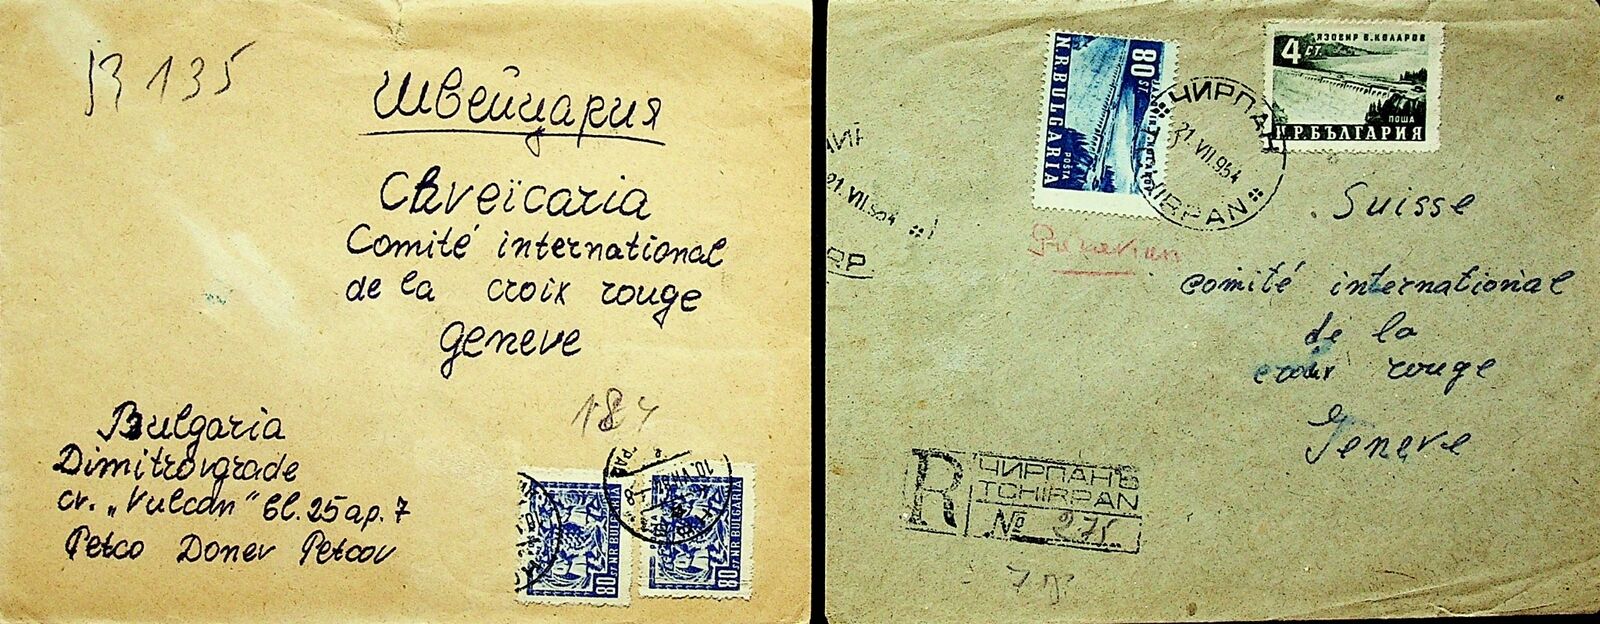 R 135
Швейцария
Chveïcaria
Comité international
de la croix rouge
Geneve
184
Bulgaria
Dimitrovgrade
cv. „Vulcan" bl. 25 ap. 7
Petco Donev Petcov
80 ST. NR BULGARIA
80 ST. NR BULGARIA
80 ST.
N.R. BULGARIA
POŠTA
4 СТ.
ЯЗОВИР В. КОЛАРОВ
ПОЩА
Н.Р. БЪЛГАРИЯ
ЧИРПАН
21. VII. 954
TCHIRPAN
21. VII. 954
Suisse
comité international
de la
croix rouge
Geneve
R
ЧИРПАНЪ
TCHIRPAN
№ 275